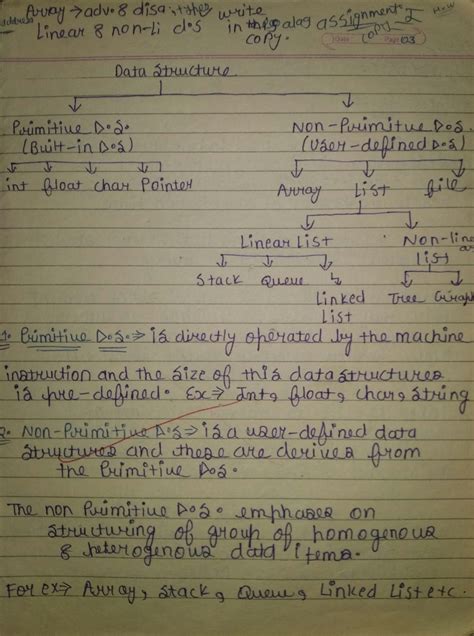 Array → adv. & disa., types write assignment-I H.W
address Linear & non-Li d.s in the copy.
Data Structure
Primitive D.S. Non-Primitive D.S
(Built-in D.S) (User-defined D.S)
int float char Pointer Array List file
Linear List Non-linear
List
Stack Queue Linked Tree Graph
List
1. Primitive D.S. ⇒ is directly operated by the machine
instruction and the size of this data structures
is pre-defined. Ex ⇒ Int, float, char, string
2. Non-Primitive D.S ⇒ is a user-defined data
structures and these are derives from
the Primitive D.S.
The non Primitive D.S. emphases on
structuring of group of homogenous
& heterogenous data items.
For ex ⇒ Array, Stack, Queue, Linked List etc.